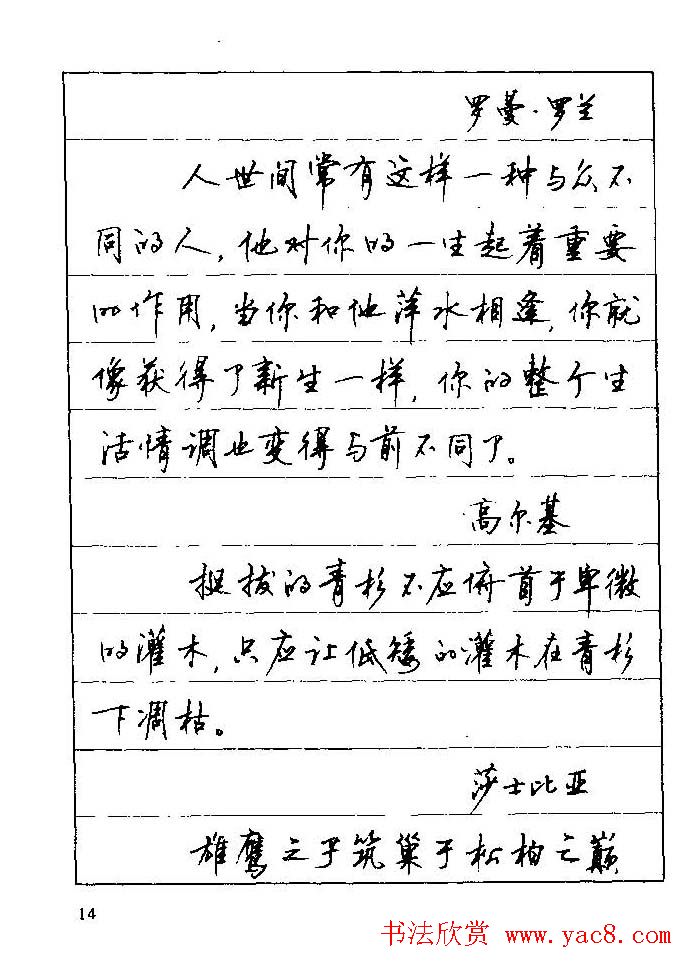 罗曼·罗兰
人世间常有这样一种与众不
同的人，他对你的一生起着重要
的作用，当你和他萍水相逢，你就
像获得了新生一样，你的整个生
活情调也变得与前不同了。
高尔基
挺拔的青杉不应俯首于卑微
的灌木，只应让低矮的灌木在青杉
下凋枯。
莎士比亚
雄鹰之子筑巢于松柏之巅
14
书法欣赏 www.yac8.com